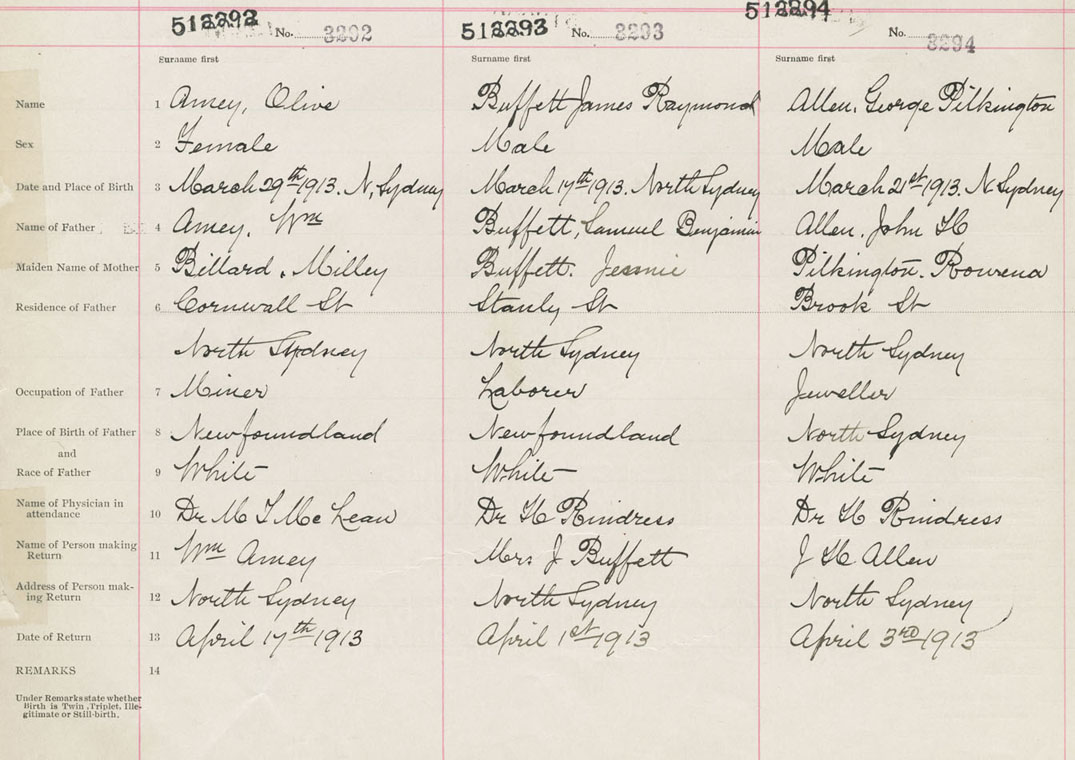 512292 No. 3292 512293 No. 3293 512294 No. 3294
Surname first Surname first Surname first
Name 1 Amey, Olive Buffett James Raymond Allen, George Pilkington
Sex 2 Female Male Male
Date and Place of Birth 3 March 29th 1913. N, Sydney March 17th 1913. North Sydney March 21st 1913. N Sydney
Name of Father 4 Amey, Wm Buffett, Samuel Benjamin Allen. John H
Maiden Name of Mother 5 Billard, Milley Buffett. Jessie Pilkington. Rowena
Residence of Father 6 Cornwall St Stanly St Brook St
North Sydney North Sydney North Sydney
Occupation of Father 7 Miner Laborer Jeweller
Place of Birth of Father 8 Newfoundland Newfoundland North Sydney
and
Race of Father 9 White White White
Name of Physician in
attendance 10 Dr M T McLean Dr H Rindress Dr H Rindress
Name of Person making
Return 11 Wm Amey Mrs J Buffett J H Allen
Address of Person mak-
ing Return 12 North Sydney North Sydney North Sydney
Date of Return 13 April 17th 1913 April 1st 1913 April 3rd 1913
REMARKS 14
Under Remarks state whether
Birth is Twin, Triplet, Ille-
gitimate or Still-birth.